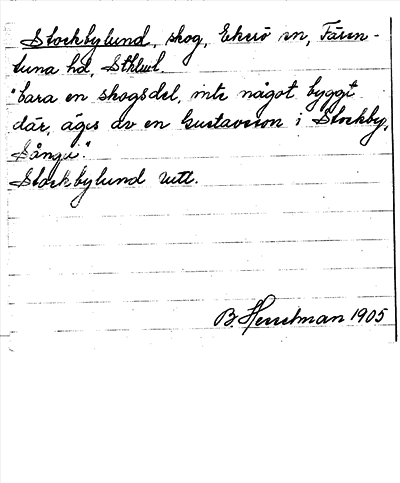 Stockbylund, skog, Ekerö sn, Fären-
tuna hd, Sthlm l.
"bara en skogsdel, inte något byggt
där, äges av en Gustavsson i Stockby,
Sånga."
Stockbylund utt.
B. Hesselman 1905